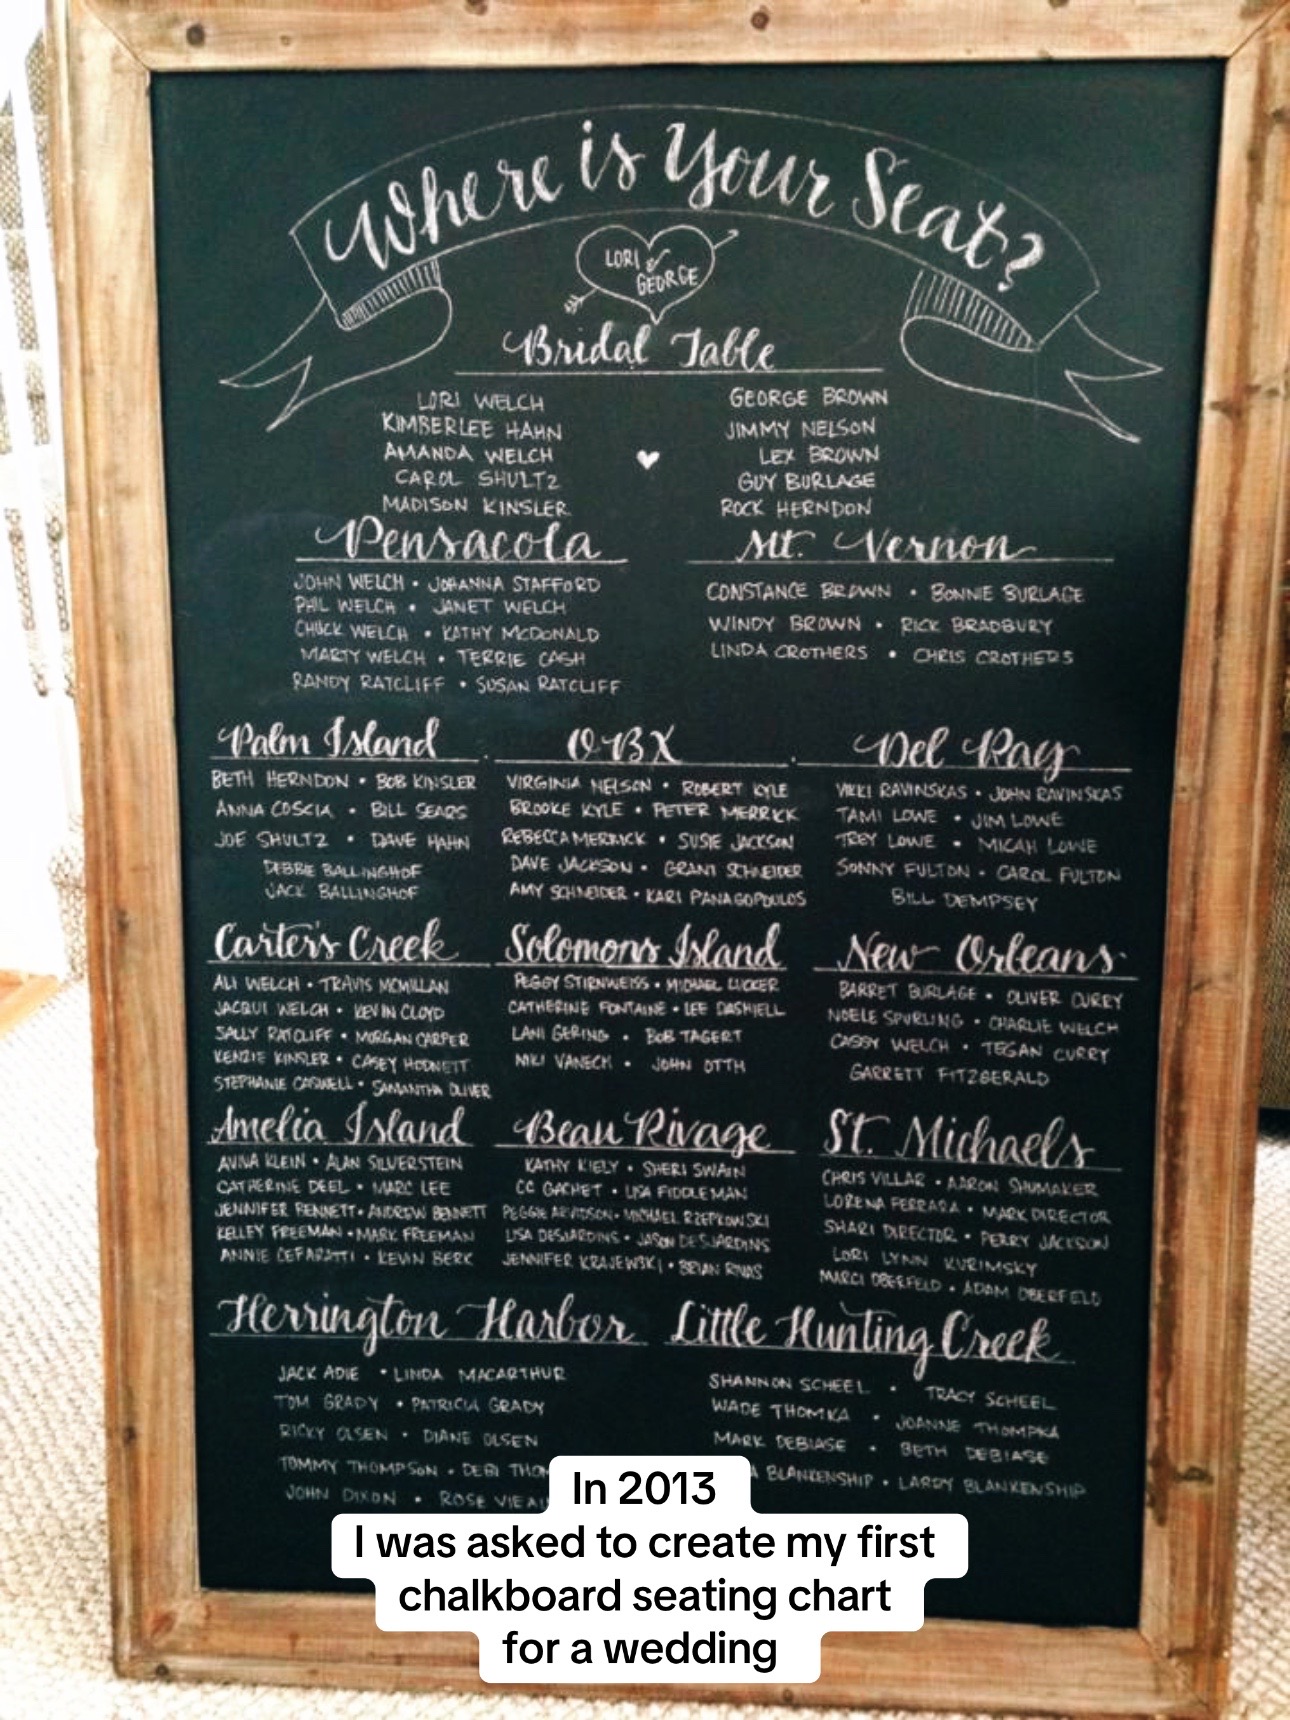 Where is Your Seat?
LORI &
GEORGE
Bridal Table
LORI WELCH
KIMBERLEE HAHN
AMANDA WELCH
CAROL SHULTZ
MADISON KINSLER
GEORGE BROWN
JIMMY NELSON
LEX BROWN
GUY BURLAGE
ROCK HERNDON
Pensacola
JOHN WELCH • JOHANNA STAFFORD
PHIL WELCH • JANET WELCH
CHUCK WELCH • KATHY MCDONALD
MARTY WELCH • TERRIE CASH
RANDY RATCLIFF • SUSAN RATCLIFF
Mt. Vernon
CONSTANCE BROWN • BONNIE BURLAGE
WINDY BROWN • RICK BRADBURY
LINDA CROTHERS • CHRIS CROTHERS
Palm Island
BETH HERNDON • BOB KINSLER
ANNA COSCIA • BILL SEARS
JOE SHULTZ • DAVE HAHN
DEBBIE BALLINGHOF
JACK BALLINGHOF
OBX
VIRGINIA NELSON • ROBERT KYLE
BROOKE KYLE • PETER MERRICK
REBECCA MERRICK • SUSIE JACKSON
DAVE JACKSON • GRANT SCHNEIDER
AMY SCHNEIDER • KARI PANAGOPOULOS
Del Ray
VIKKI RAVINSKAS • JOHN RAVINSKAS
TAMI LOWE • JIM LOWE
TREY LOWE • MICAH LOWE
SONNY FULTON • CAROL FULTON
BILL DEMPSEY
Carter's Creek
ALI WELCH • TRAVIS MCMILLAN
JACQUI WELCH • KEVIN CLOYD
SALLY RATCLIFF • MORGAN CARPER
KENZIE KINSLER • CASEY HODNETT
STEPHANIE CASWELL • SAMANTHA OLIVER
Solomons Island
PEGGY STIRNWEISS • MICHAEL LUCKER
CATHERINE FONTAINE • LEE DASHIELL
LANI GERING • BOB TAGERT
NIKI VANECH • JOHN OTTH
New Orleans
BARRET BURLAGE • OLIVER CURRY
NOELE SPURLING • CHARLIE WELCH
CASSY WELCH • TEGAN CURRY
GARRETT FITZGERALD
Amelia Island
ANNA KLEIN • ALAN SILVERSTEIN
CATHERINE DEEL • MARC LEE
JENNIFER BENNETT • ANDREW BENNETT
KELLEY FREEMAN • MARK FREEMAN
ANNIE CEFARATTI • KEVIN BERK
Beau Rivage
KATHY KIELY • SHERI SWAIN
CC GACHET • LISA FIDDLEMAN
PEGGIE ARVIDSON • MICHAEL RZEPKOWSKI
LISA DESJARDINS • JASON DESJARDINS
JENNIFER KRAJEWSKI • BRIAN RIVAS
St. Michaels
CHRIS VILLAR • AARON SHUMAKER
LORENA FERRARA • MARK DIRECTOR
SHARI DIRECTOR • PERRY JACKSON
LORI LYNN KURIMSKY
MARCI OBERFELD • ADAM OBERFELD
Herrington Harbor
JACK ADIE • LINDA MACARTHUR
TOM GRADY • PATRICIA GRADY
RICKY OLSEN • DIANE OLSEN
TOMMY THOMPSON • DEBI
JOHN DIXON • ROSE
Little Hunting Creek
SHANNON SCHEEL • TRACY SCHEEL
WADE THOMKA • JOANNE THOMPKA
MARK DEBIASE • BETH DEBIASE
BLANKENSHIP • LARRY BLANKENSHIP
In 2013
I was asked to create my first
chalkboard seating chart
for a wedding